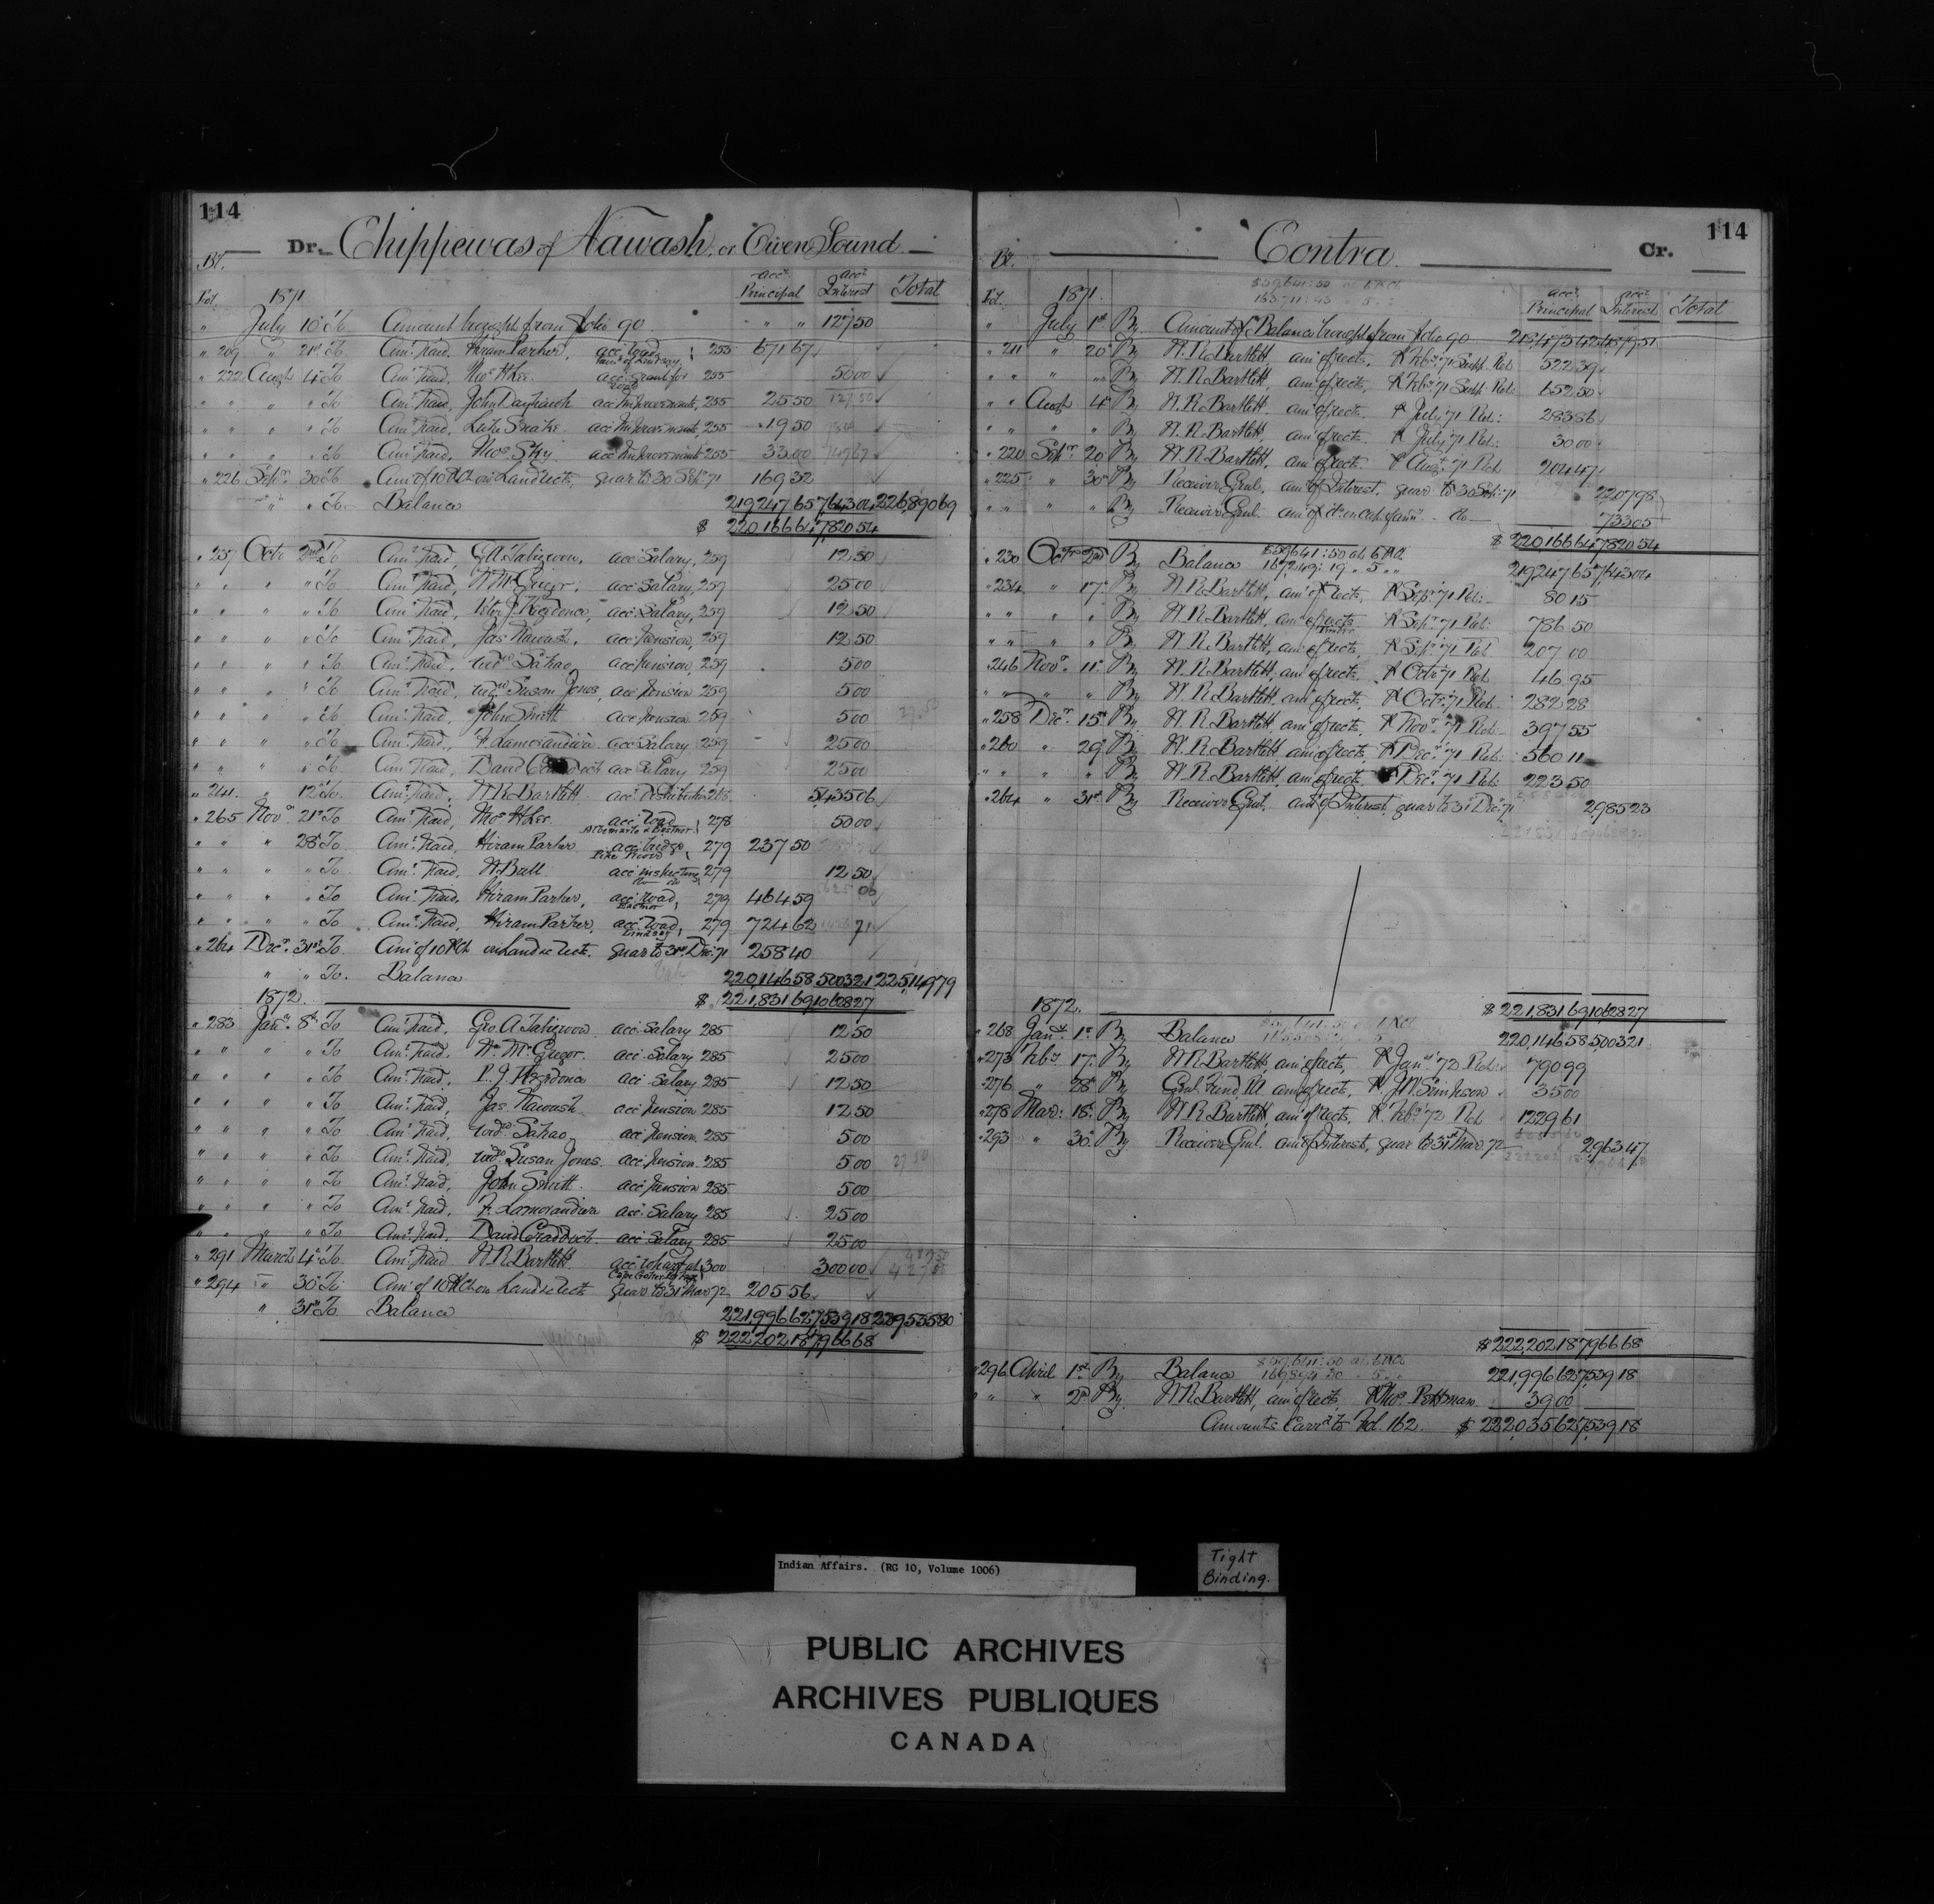 114
Dr. Chippewas of Nawash, or Owen Sound
Bt. Fol. 1871 acct. Principal acct. Interest Total
" July 10 To Amount brought from folio 90 " " 127 50
" 209 " 21st To Amt. Paid, Hiram Parker, acc. road, Town of Lindsay, 255 671 67
" 222 Augt 4th To Amt. Paid, Thos. H. Lee acc. 255 50 00
" " " " To Amt. Paid, John acc. Improvements, 255 25 50
" " " " To Amt. Paid, Luke Snake acc. Improvements, 255 19 50
" " " " To Amt. Paid, Thos. Sky acc. Improvements 255 33 00
" 226 Septr. 30th To Amt. of 10 P Ct. on Land rects, quar to 30 Sep. 71 169 32
" " " To Balance 219,247 65 7,643 04 226,890 69
$ 220,166 64 7,820 54
" 237 Octr 2nd To Amt. Paid, G. A. Tabigwon, acc. Salary, 259 12 50
" " " " To Amt. Paid, W. McGregor, acc. Salary, 259 25 00
" " " " To Amt. Paid, Peter J. Kegedonce, acc. Salary, 259 12 50
" " " " To Amt. Paid, Jas. Nawash, acc. Pension, 259 12 50
" " " " To Amt. Paid, Widw. Sahao, acc. Pension, 259 5 00
" " " " To Amt. Paid, Widw. Susan Jones, acc. Pension 259 5 00
" " " " To Amt. Paid, John Smith acc. Pension 259 5 00
" " " " To Amt. Paid, F. Lamorandiere acc. Salary 259 25 00
" " " " To Amt. Paid, David Craddock acc. Salary 259 25 00
" 241 " 12th To Amt. Paid, W. R. Bartlett acc. Distribution 268 5,435 06
" 265 Novr. 21st To Amt. Paid, Thos. H. Lee acc. road Albemarle & Eastnor, 278 50 00
" " " 28th To Amt. Paid, Hiram Parker acc. bridge 279 237 50
" " " " To Amt. Paid, W. Bull acc. inspecting 279 12 50
" " " " To Amt. Paid, Hiram Parker, acc. road, Eastnor 279 464 59
" " " " To Amt. Paid, Hiram Parker, acc. road, Lindsay 279 724 62
" 264 Decr. 31st To Amt. of 10 P Ct. on Land rects. quar to 31st Dec. 71 258 40
" " To Balance 220,146 58 5,003 21 225,149 79
1872. $ 221,831 69 10,628 27
" 283 Jany. 8th To Amt. Paid, Geo. A. Tabigwon acc. Salary 285 12 50
" " " " To Amt. Paid, Wm. McGregor. acc. Salary 285 25 00
" " " " To Amt. Paid, P. J. Kegedonce acc. Salary 285 12 50
" " " " To Amt. Paid, Jas. Nawash acc. Pension 285 12 50
" " " " To Amt. Paid, Widw. Sahao acc. Pension 285 5 00
" " " " To Amt. Paid, Widw. Susan Jones acc. Pension 285 5 00
" " " " To Amt. Paid, John Smith acc. Pension 285 5 00
" " " " To Amt. Paid, F. Lamorandiere acc. Salary 285 25 00
" " " " To Amt. Paid, David Craddock acc. Salary 285 25 00
" 291 March 4th To Amt. Paid W. R. Bartlett acc. wharf at Cape Croker 300 300 00
" 294 " 30th To Amt. of 10 P Ct on Land rects quar to 31 Mar 72 205 56
" 31st To Balance 221,996 62 7,539 18 229,535 80
$ 222,202 18 7,966 68
114
Contra Cr.
Bt. Fol. 1871. $59,641:50 at 6 P Ct acct. Principal acct. Interest Total
" July 1st By Amount of Balance brought from folio 90
" 211 " 20th By W. R. Bartlett, amt. of rects, P Feby. 71 Supp. Ret. 522 39
" " " " By W. R. Bartlett, amt. of rects, P Feby. 71 Supp. Ret. 652 50
" " Augt 4th By W. R. Bartlett, amt. of rects. P July 71 Ret. 283 86
" " " " By W. R. Bartlett, amt. of rects. P July 71 Ret. 30 00
" 220 Sepr. 20 By W. R. Bartlett, amt. of rects. P Augt. 71 Ret 204 47
" 225 " 30th By Receiver Genl. amt. of Interest, quar to 30 Sep. 71 2,207 98
" " " " By Receiver Genl. amt. of do 733 05
$ 220,166 64 7,820 54
" 230 Octr 2nd By Balance $59,641:50 at 6 P Ct 219,247 65 7,643 04
" 234 " 17th By W. R. Bartlett, amt. of rects, P Sepr. 71 Ret. 80 15
" " " " By W. R. Bartlett, amt. of rects P Sepr. 71 Ret. 786 50
" " " " By W. R. Bartlett, amt. of rects, Timber P Sepr. 71 Ret 207 00
" 246 Novr. 11th By W. R. Bartlett, amt. of rects. P Octr. 71 Ret. 46 95
" " " " By W. R. Bartlett, amt. of rects, P Octr. 71 Ret. 282 28
" 258 Decr. 15th By W. R. Bartlett, amt. of rects, P Novr. 71 Ret. 397 55
" 260 " 29th By W. R. Bartlett, amt. of rects, P Decr. 71 Ret. 560 11
" " " " By W. R. Bartlett, amt. of rects, P Decr. 71 Ret. 223 50
" 264 " 31st By Receiver Genl. amt. of Interest, quar to 31 Dec. 71 2,985 23
1872. $ 221,831 69 10,628 27
" 268 Jany. 1st By Balance 220,146 58 5,003 21
" 273 Feby 17th By W. R. Bartlett, amt. of rects, P Jany. 72 Ret. 790 99
" 276 " 28th By Genl. Fund, amt. of rects, P J. W. Simpson 35 00
" 278 Mar. 18th By W. R. Bartlett, amt. of rects, P Feby. 72 Ret 1229 61
" 293 " 30th By Receiver Genl. amt. of Interest, quar to 31st Mar 72 2,963 47
$ 222,202 18 7,966 68
" 296 April 1st By Balance $59,641:50 at 6 P Ct 221,996 62 7,539 18
" " " 2nd By W. R. Bartlett, amt. of rects, P Thos. 39 00
Amounts Carrd. to Fol. 162. $ 222,035 62 7,539 18
Indian Affairs. (RG 10, Volume 1006)
Tight
Binding.
PUBLIC ARCHIVES
ARCHIVES PUBLIQUES
CANADA